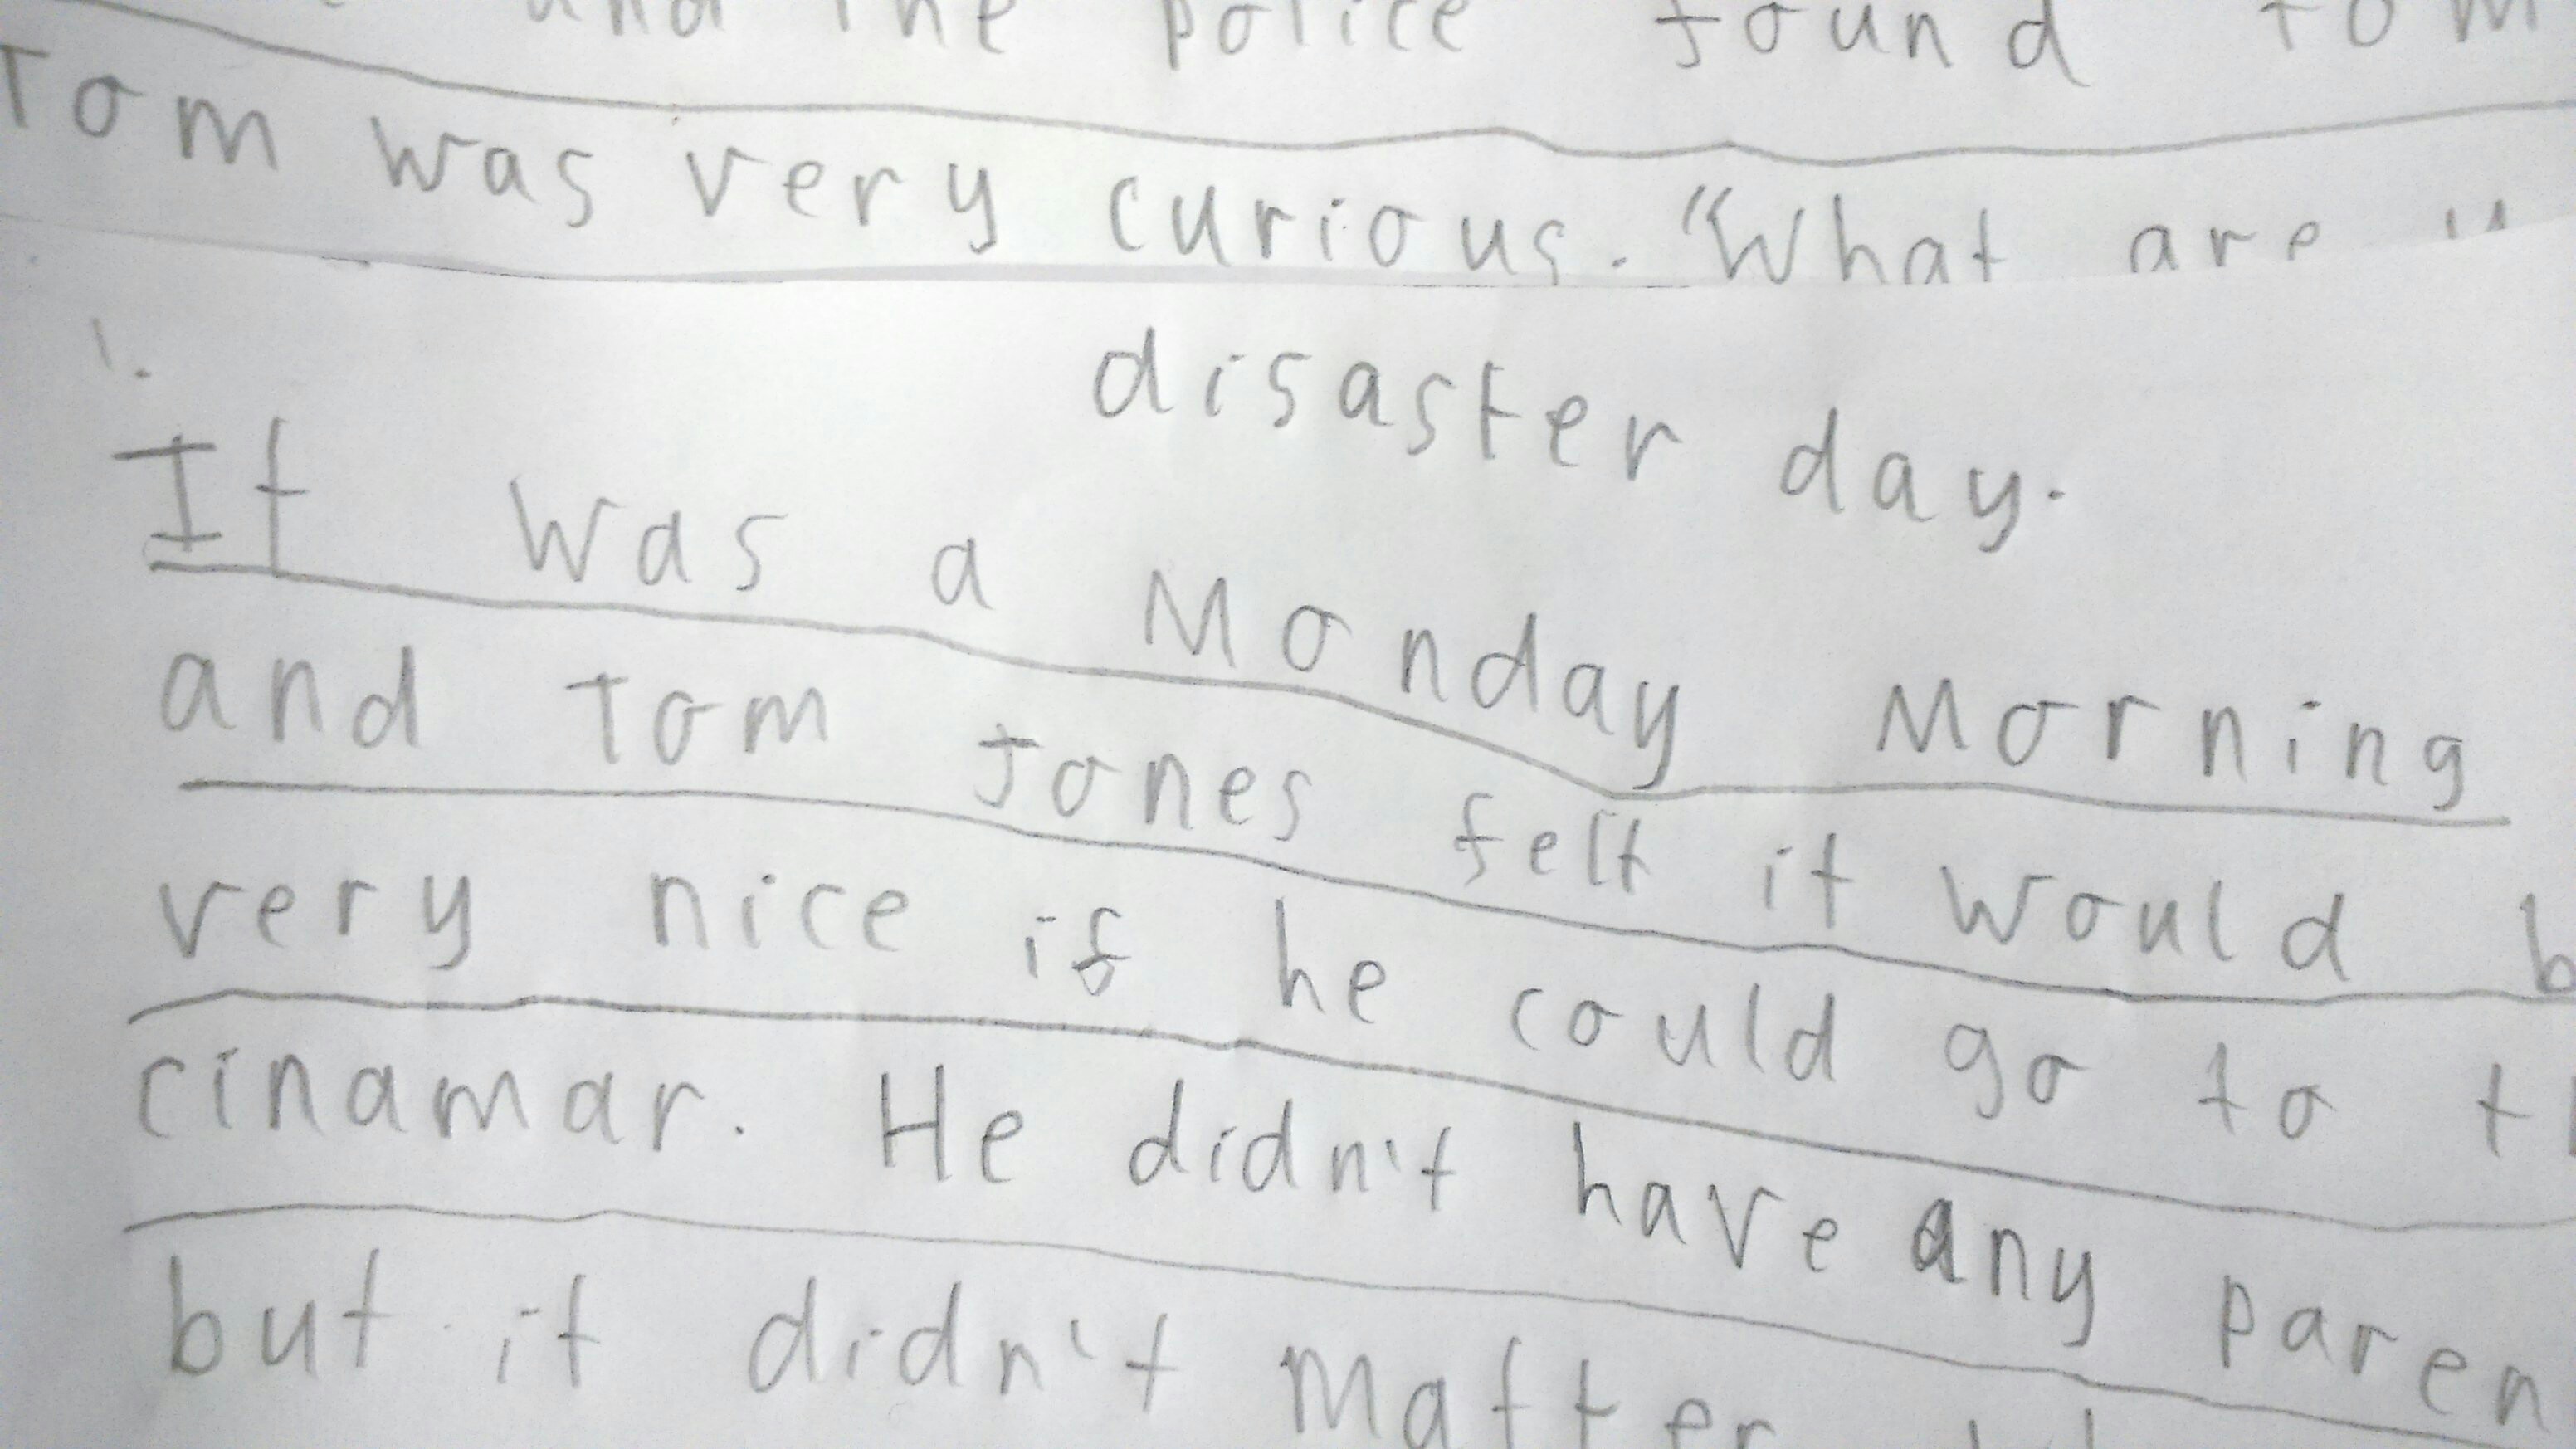 and the police found Tom
Tom was very curious. "What are
1.
disaster day.
It was a Monday Morning
and Tom Jones felt it would b
very nice if he could go to t
cinamar. He didn't have any paren
but it didn't Matter